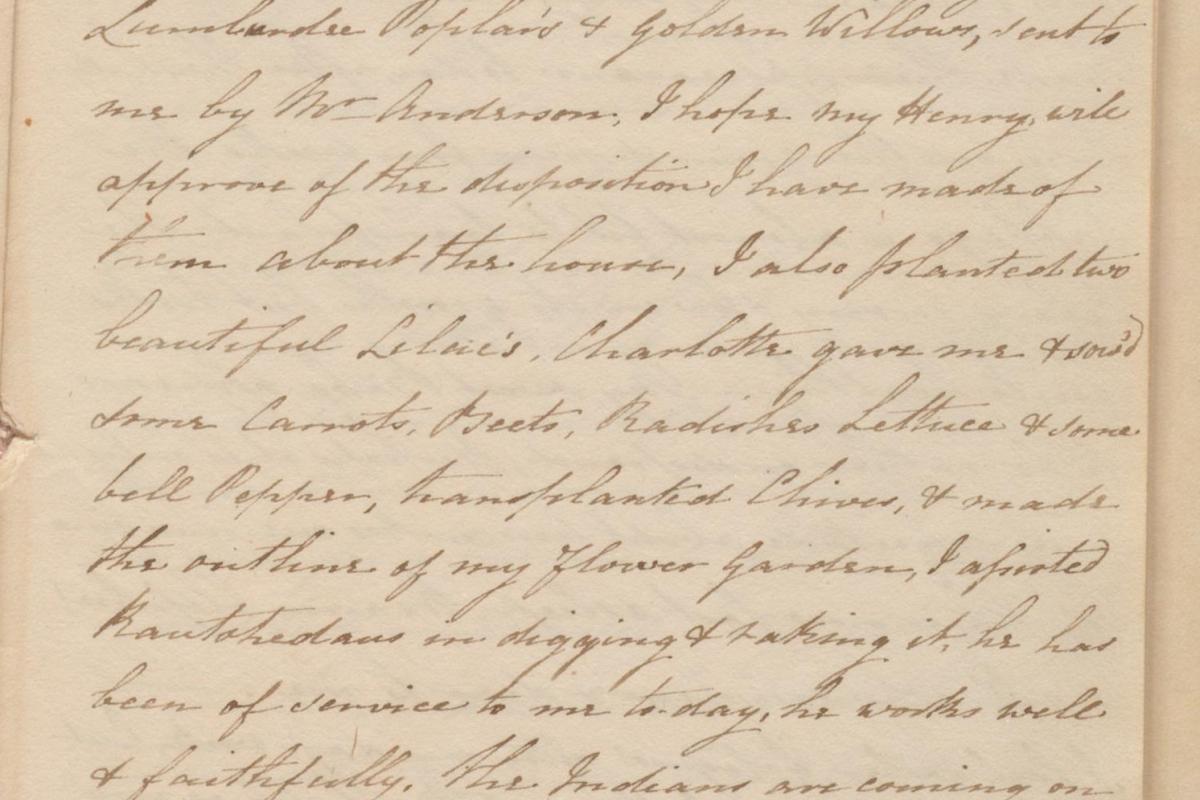 Lumbardee Poplar's & Golden Willows, sent to
me by Mr Anderson, I hope my Henry, will
approve of the disposition I have made of
them about the house, I also planted two
beautiful Lilac's, Charlotte gave me & sow'd
some Carrots, Beets, Radishes Lettuce & some
bell Pepper, transplanted Chives, & made
the outline of my Flower Garden, I assisted
in digging & raking it, he has
been of service to me to-day, he works well
& faithfully. The Indians are coming on